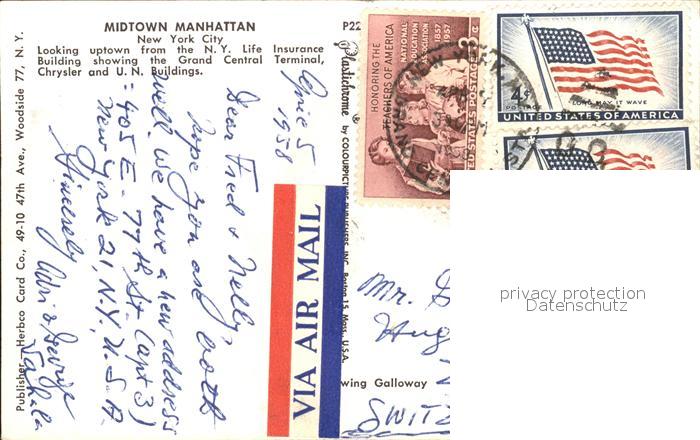 MIDTOWN MANHATTAN
New York City
Looking uptown from the N.Y. Life Insurance
Building showing the Grand Central Terminal,
Chrysler and U. N. Buildings.
P22
Publisher - Herbco Card Co., 49-10 47th Ave., Woodside 77, N. Y.
April 5
1958
Dear Fred & Nelly,
hope you are both
well. We have a new address
= 405 E - 77th St - (apt 3)
New York 21, N.Y. U.S.A.
Sincerely
VIA AIR MAIL
Plastichrome ® by COLOURPICTURE PUBLISHERS, INC. Boston 15, Mass., U.S.A.
HONORING THE
TEACHERS OF AMERICA
NATIONAL
EDUCATION
ASSOCIATION
1857
1957
UNITED STATES POSTAGE
4¢
POSTAGE
LONG MAY IT WAVE
UNITED STATES OF AMERICA
Mr.
Hug
wing Galloway
SWITZ
privacy protection
Datenschutz